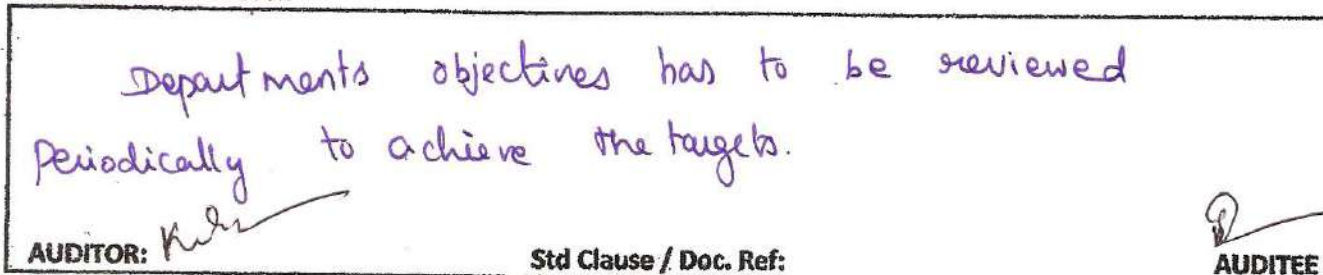 Departments objectives has to be reviewed
Periodically to achieve the targets.
AUDITOR:
Std Clause / Doc. Ref:
AUDITEE